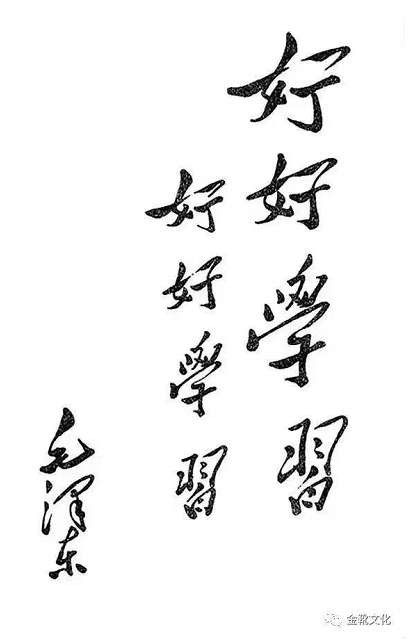 好好學習
好好學習
毛澤东
金靴文化